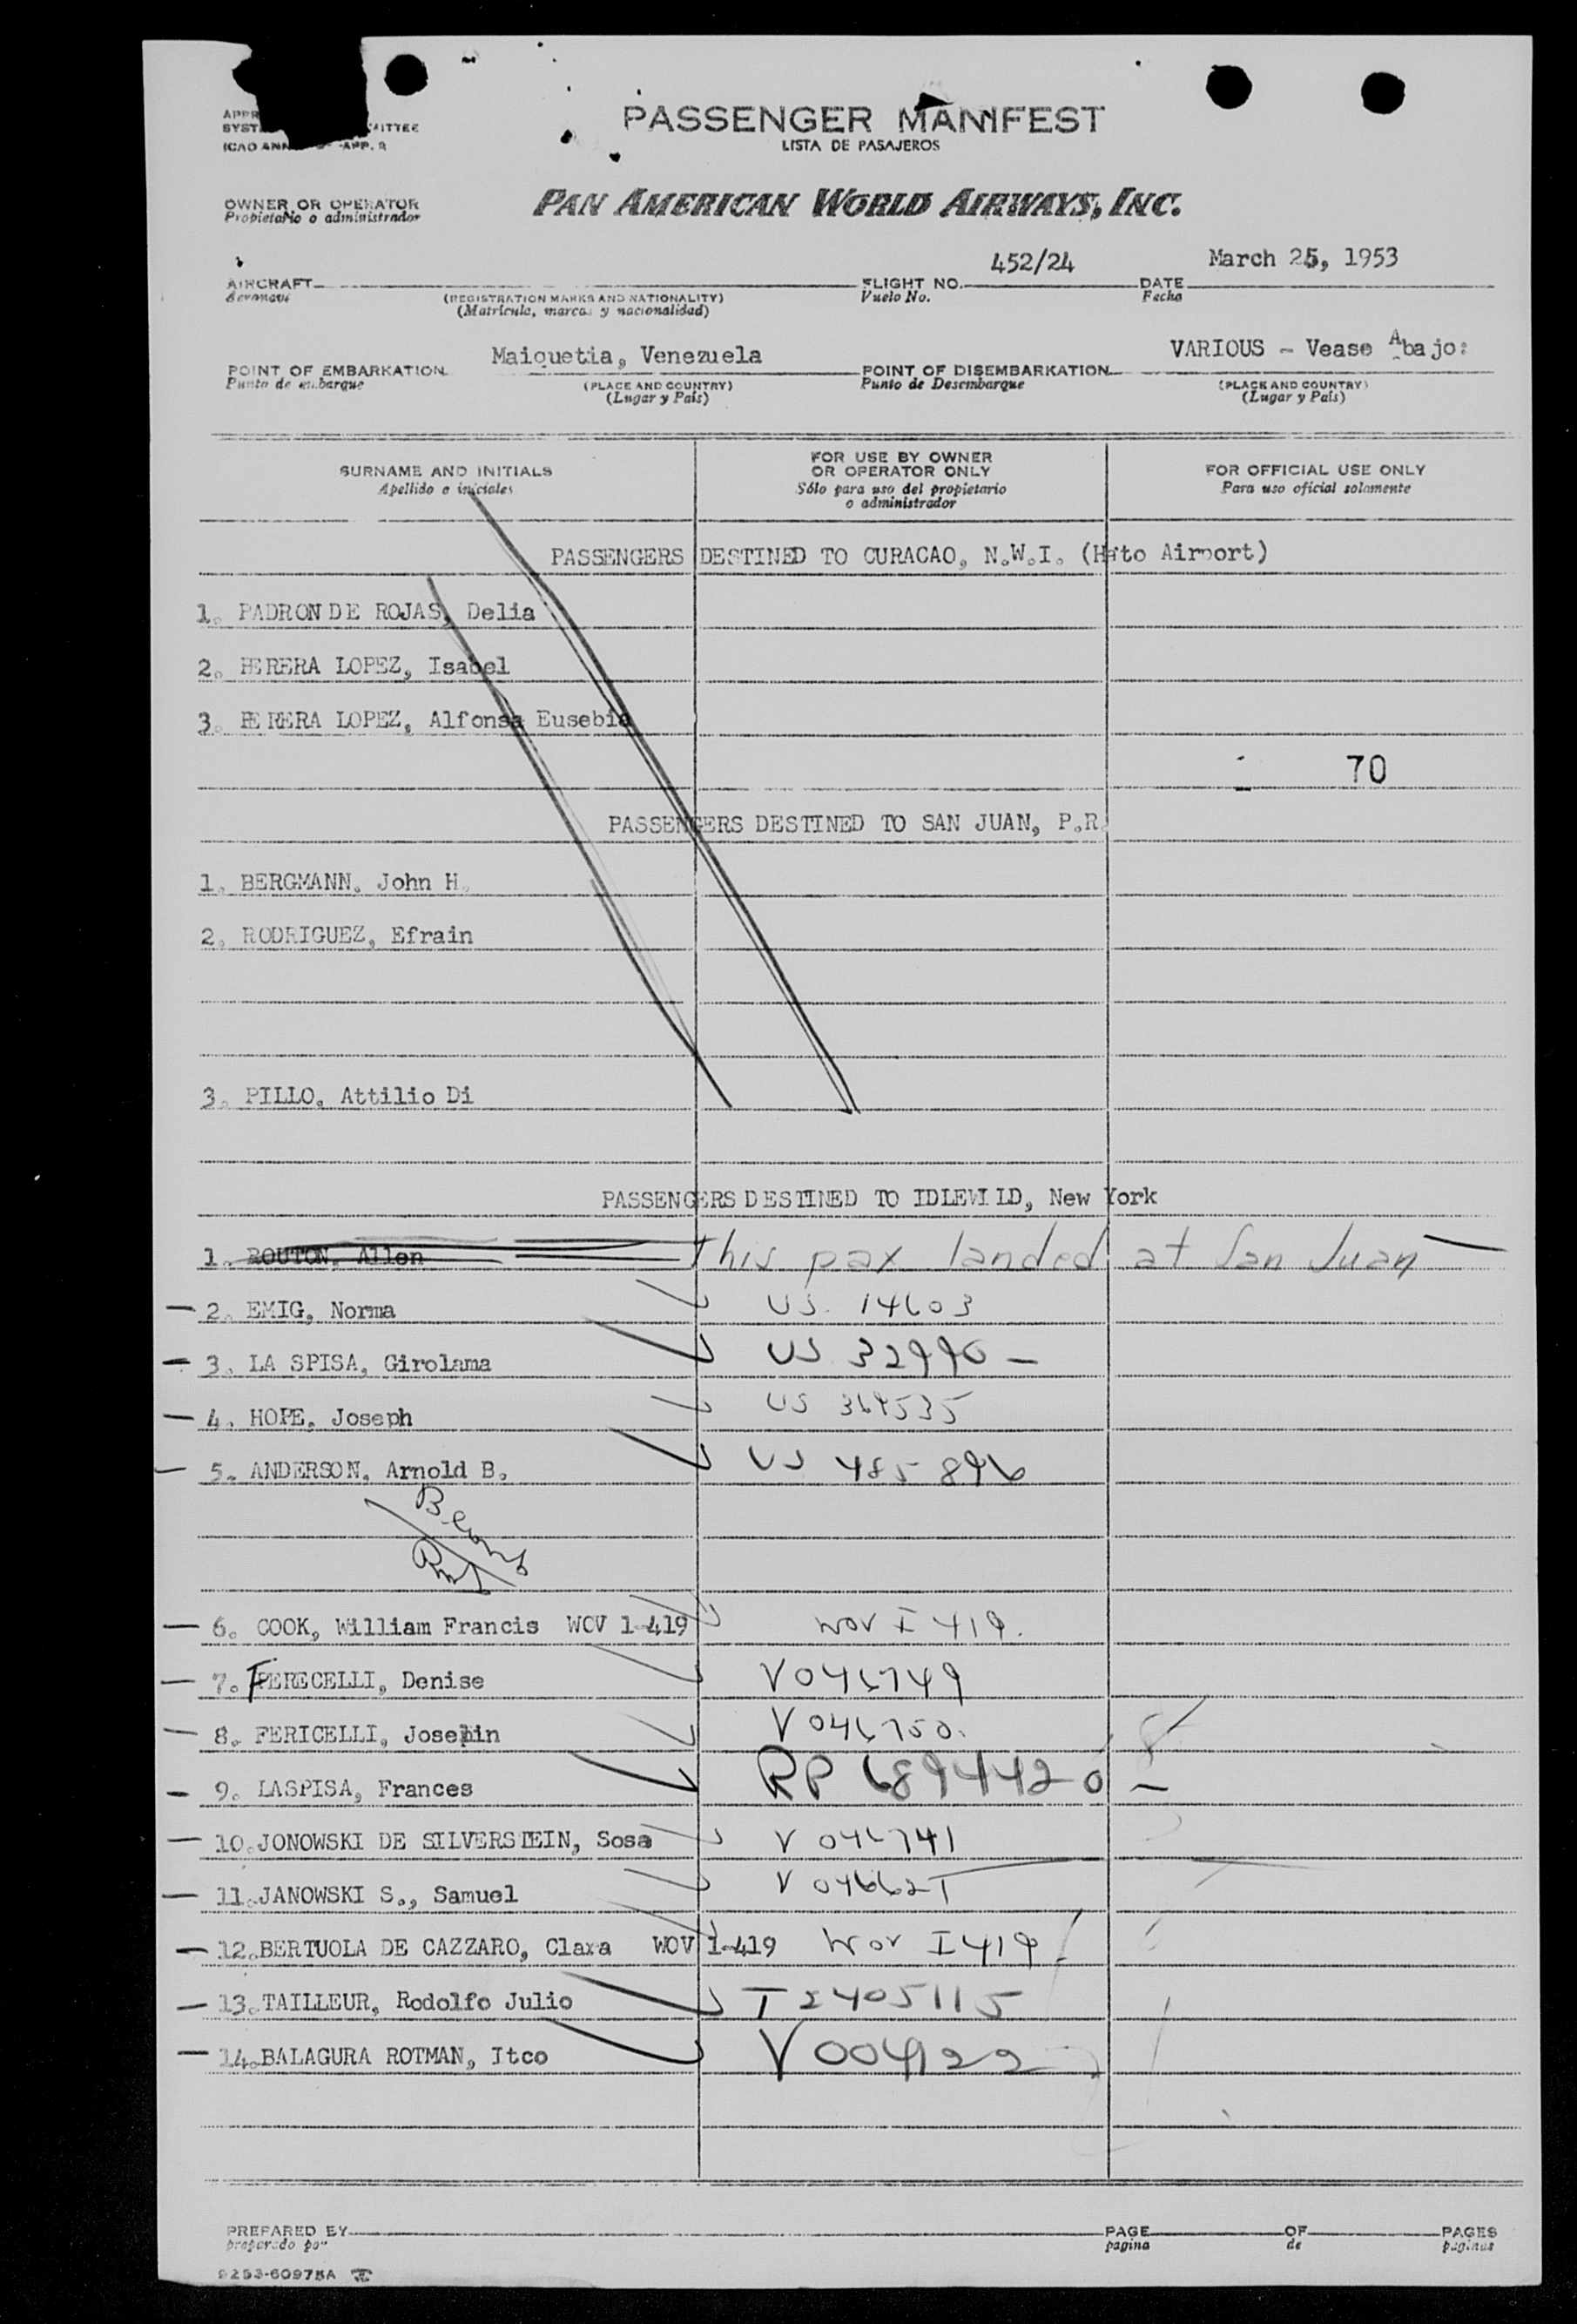 PASSENGER MANIFEST
LISTA DE PASAJEROS
OWNER OR OPERATOR
Propietario o administrador
PAN AMERICAN WORLD AIRWAYS, INC.
AIRCRAFT
Aeronave
(REGISTRATION MARKS AND NATIONALITY)
(Matrícula, marcas y nacionalidad)
FLIGHT NO. 452/24
Vuelo No.
DATE March 25, 1953
Fecha
POINT OF EMBARKATION Maiquetia, Venezuela
Punto de embarque
(PLACE AND COUNTRY)
(Lugar y País)
POINT OF DISEMBARKATION VARIOUS - Vease Abajo:
Punto de Desembarque
(PLACE AND COUNTRY)
(Lugar y País)
SURNAME AND INITIALS
Apellido e iniciales
FOR USE BY OWNER
OR OPERATOR ONLY
Sólo para uso del propietario
o administrador
FOR OFFICIAL USE ONLY
Para uso oficial solamente
PASSENGERS DESTINED TO CURACAO, N.W.I. (Hato Airport)
1. PADRON DE ROJAS, Delia
2. PERERA LOPEZ, Isabel
3. PERERA LOPEZ, Alfonsa Eusebia
70
PASSENGERS DESTINED TO SAN JUAN, P.R.
1. BERGMANN, John H.
2. RODRIGUEZ, Efrain
3. PILLO, Attilio Di
PASSENGERS DESTINED TO IDLEWILD, New York
1. BOUTON, Allen This pax landed at San Juan
2. EMIG, Norma US 14603
3. LA SPISA, Girolama US 32990 -
4. HOPE, Joseph US 364535
5. ANDERSON, Arnold B. US 485896
6. COOK, William Francis WOV 1-419 WOV I 419.
7. FERECELLI, Denise V046749
8. FERICELLI, Josephin V046750.
9. LASPISA, Frances RP 689442
10. JONOWSKI DE SILVERSTEIN, Sosa V 046741
11. JANOWSKI S., Samuel
12. BERTUOLA DE CAZZARO, Clara WOV 1-419 WOV I 419
13. TAILLEUR, Rodolfo Julio I 2405115
14. BALAGURA ROTMAN, Itco V 004122
PREPARED BY
preparado por
PAGE OF PAGES
pagina de paginas
9253-60975A